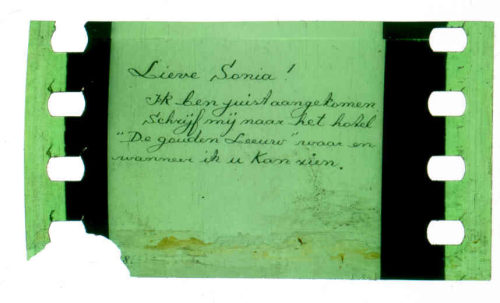 Lieve Sonia!
Ik ben juist aangekomen
Schrijf mij naar het hotel
"De gouden Leeuw" waar en
wanneer ik u kan zien.